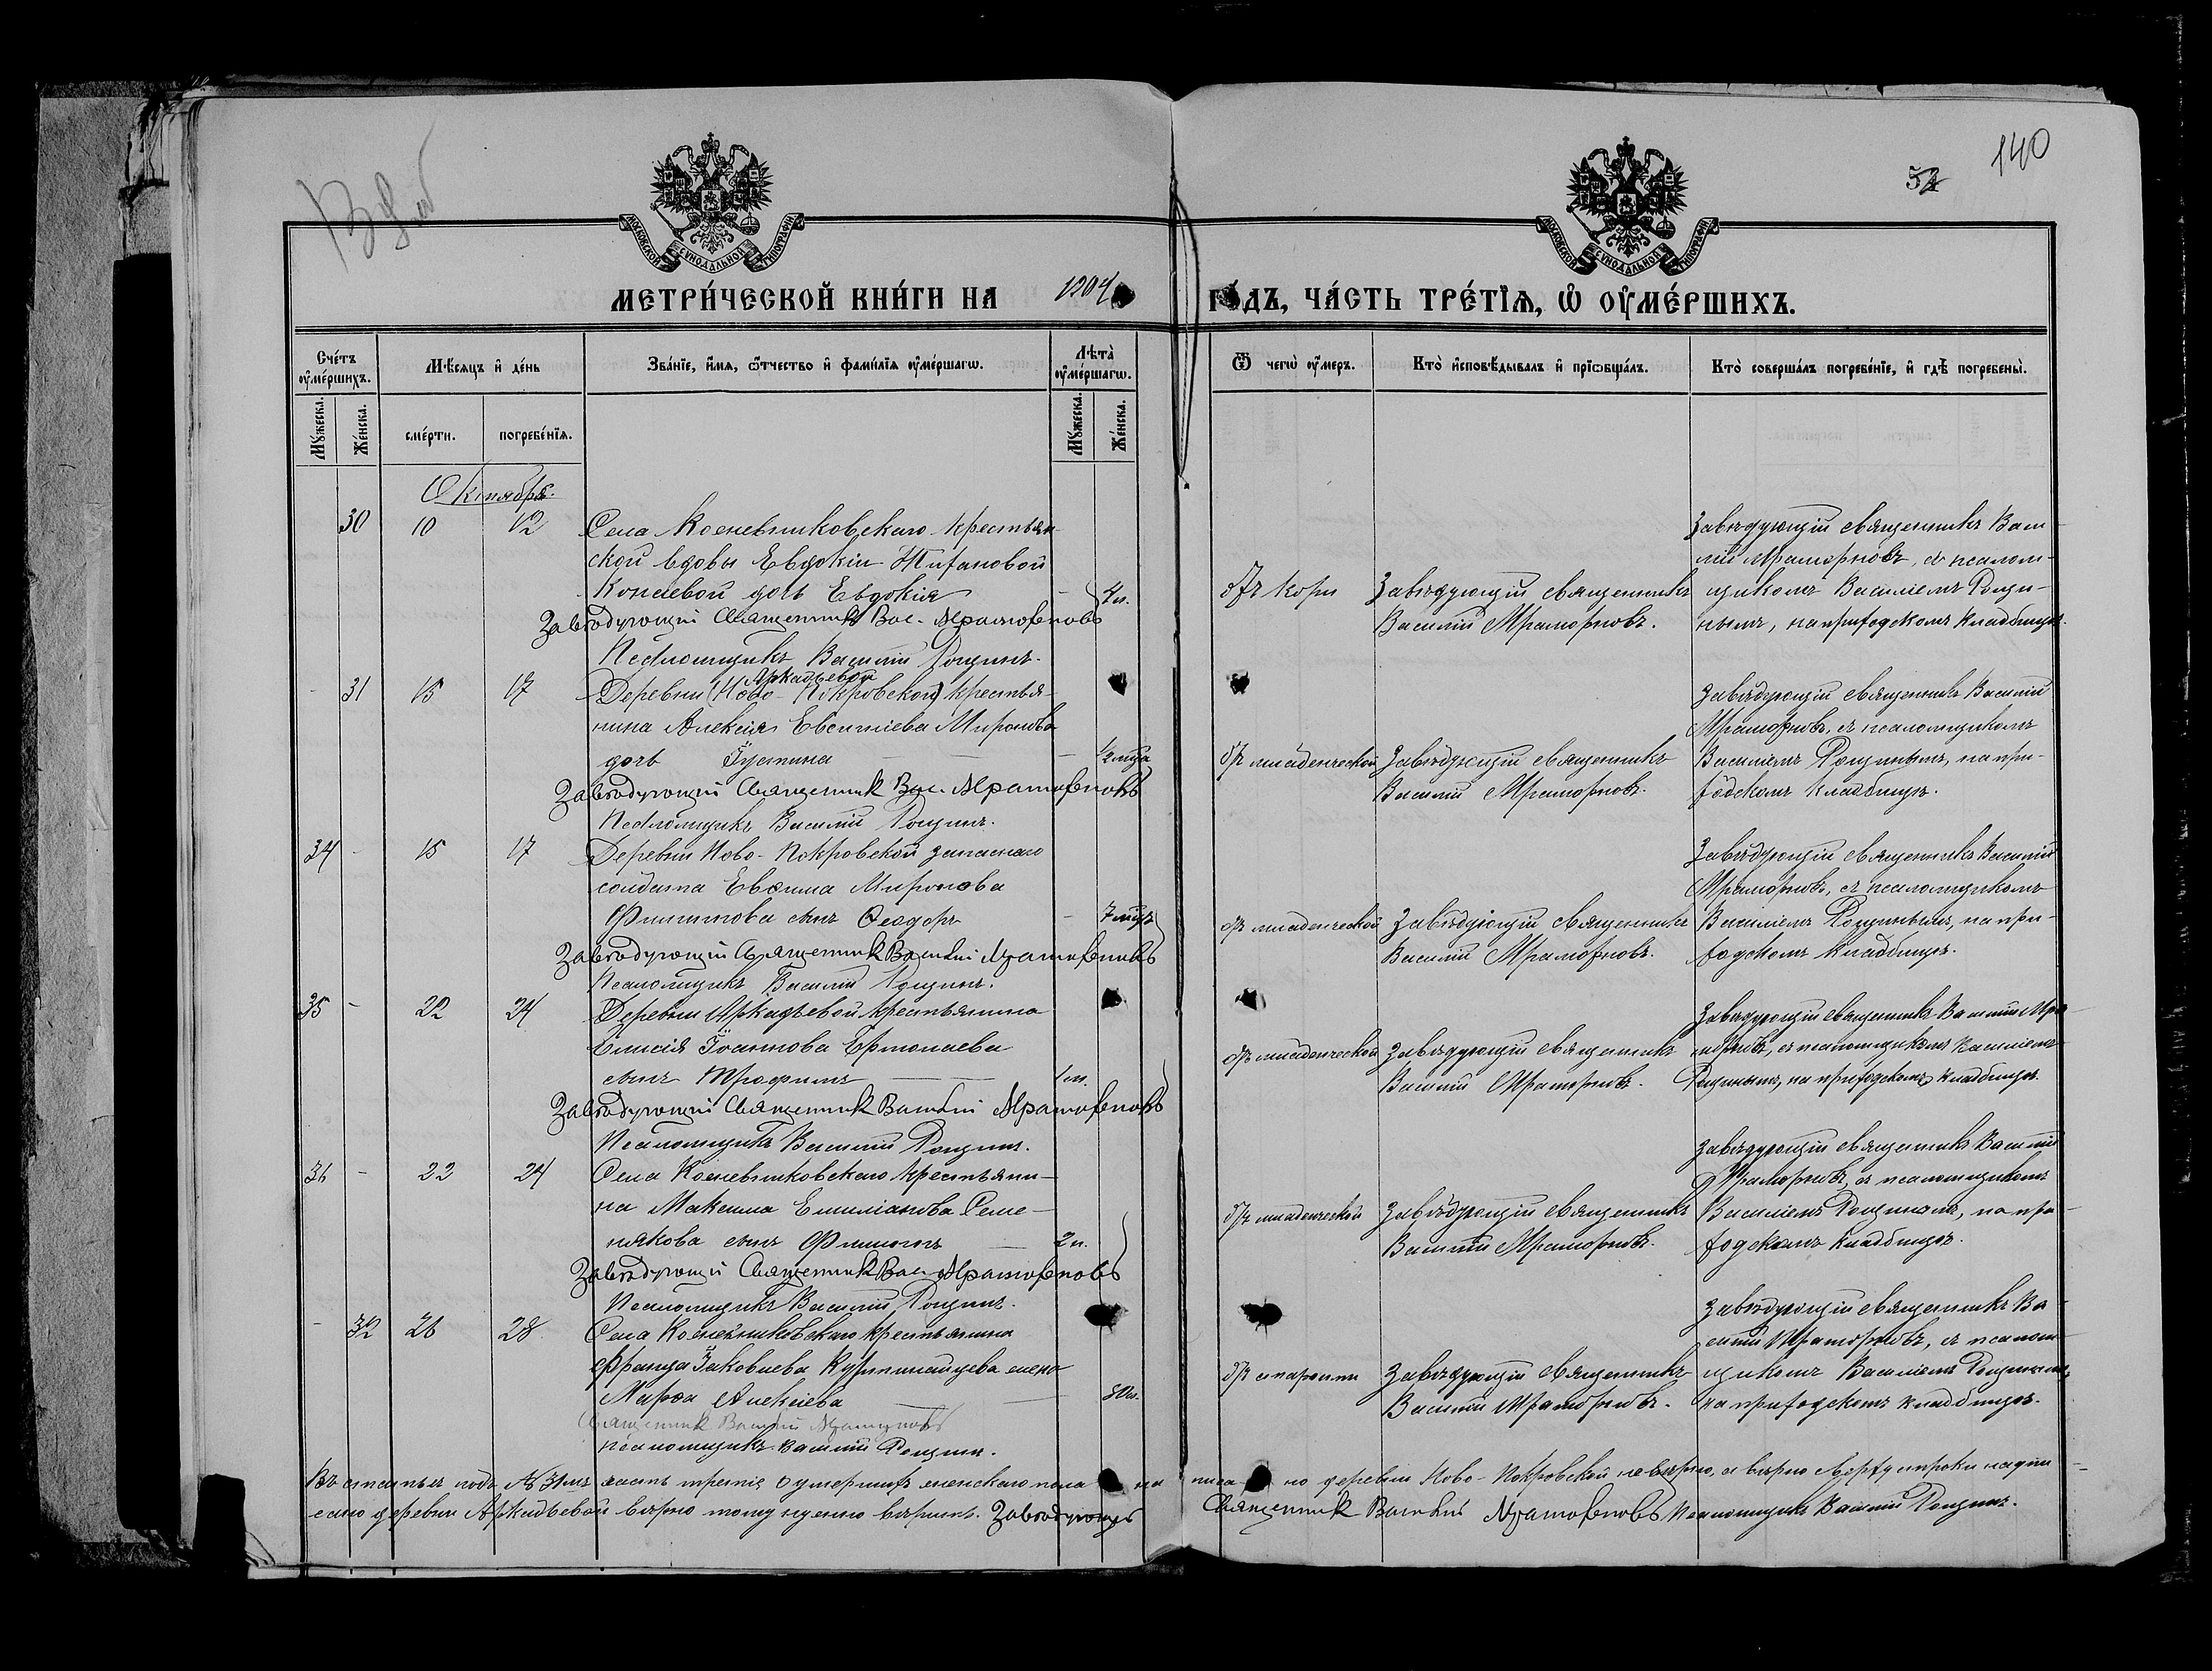 140
МОСКОВСКОЙ СѴНОДАЛЬНОЙ ТИПОГРАФІИ
МОСКОВСКОЙ СѴНОДАЛЬНОЙ ТИПОГРАФІИ
МЕТРИ́ЧЕСКОЙ КНИ́ГИ НА 1904 ГО́ДЪ, ЧА́СТЬ ТРЕ́ТІѦ, Ѡ҆ ОУ҆МЕ́РШИХЪ.
Сче́тъ оу҆ме́ршихъ.
Мѣ́сяцъ и҆ де́нь
Зва́нїе, и҆́мѧ, ѻ҆́тчество и҆ фами́лїѧ оу҆ме́ршагѡ.
Лѣта̀ оу҆ме́ршагѡ.
Ѿ чегѡ̀ оу҆́меръ.
Кто̀ и҆сповѣ́дывалъ и҆ прїѡбща́лъ.
Кто̀ соверша́лъ погребе́нїе, и҆ гдѣ̀ погребены̀.
Мꙋ́жеска.
Же́нска.
сме́рти.
погребе́нїѧ.
Мꙋ́жеска.
Же́нска.
Октябрь.
30 10 12 Села Кожевниковскаго крестьян-
ской вдовы Евдокіи
дочь Евдокія 4 л.
Завѣдующій Священникъ Вас. Мраморновъ
Псаломщикъ Василій Рощинъ.
Отъ кори
Завѣдующій священникъ
Василій Мраморновъ.
Завѣдующій священникъ Васи-
лій Мраморновъ, съ псалом-
щикомъ Василіемъ Рощи-
нымъ, на приходскомъ кладбищѣ.
Аркадьевой
- 31 15 17 Деревни (Ново-Покровской) крестья-
нина Алексія Миронова
дочь Іустина 1/2 мѣсяца
Завѣдующій Священникъ Вас. Мраморновъ
Псаломщикъ Василій Рощинъ.
От младенческой
Завѣдующій священникъ
Василій Мраморновъ.
Завѣдующій священникъ Василій
Мраморновъ, съ псаломщикомъ
Василіемъ Рощинымъ, на при-
ходскомъ кладбищѣ.
34 - 15 17 Деревни Ново-Покровской запаснаго
солдата Миронова
Филиппова сынъ Ѳеодоръ 7 мѣсяц.
Завѣдующій Священникъ Василій Мраморновъ
Псаломщикъ Василій Рощинъ.
От младенческой
Завѣдующій священникъ
Василій Мраморновъ.
Завѣдующій священникъ Василій
Мраморновъ, съ псаломщикомъ
Василіемъ Рощинымъ, на при-
ходскомъ кладбищѣ.
35 - 22 24 Деревни Аркадьевой крестьянина
Елисія Іоаннова Ермолаева
сынъ Трофимъ 1 л.
Завѣдующій Священникъ Василій Мраморновъ
Псаломщикъ Василій Рощинъ.
От младенческой
Завѣдующій священникъ
Василій Мраморновъ.
Завѣдующій священникъ Василій Мра-
морновъ, съ псаломщикомъ Василіемъ
Рощинымъ, на приходскомъ кладбищѣ.
36 - 22 24 Села Кожевниковскаго крестьяни-
на Максима Емиліанова
сынъ 2 л.
Завѣдующій Священникъ Вас. Мраморновъ
Псаломщикъ Василій Рощинъ.
От младенческой
Завѣдующій священникъ
Василій Мраморновъ.
Завѣдующій священникъ Василій
Мраморновъ, съ псаломщикомъ
Василіемъ Рощинымъ, на при-
ходскомъ кладбищѣ.
- 32 26 28 Села Кожевниковскаго крестьянина
Іаковлева жена
Марѳа Алексіева 80 л.
Священникъ Василій Мраморновъ
Псаломщикъ Василій Рощинъ.
От старости
Завѣдующій священникъ
Василій Мраморновъ.
Завѣдующій священникъ Ва-
силій Мраморновъ, съ псалом-
щикомъ Василіемъ Рощинымъ,
на приходскомъ кладбищѣ.
Въ статьѣ подъ № 31мъ часть третія о умершихъ женскаго пола написано деревни Ново-Покровской невѣрно, а вѣрно сверху строки надпи-
сано деревни Аркадьевой вѣрно тому и должно вѣрить. Завѣдующій Священникъ Василій Мраморновъ Псаломщикъ Василій Рощинъ.